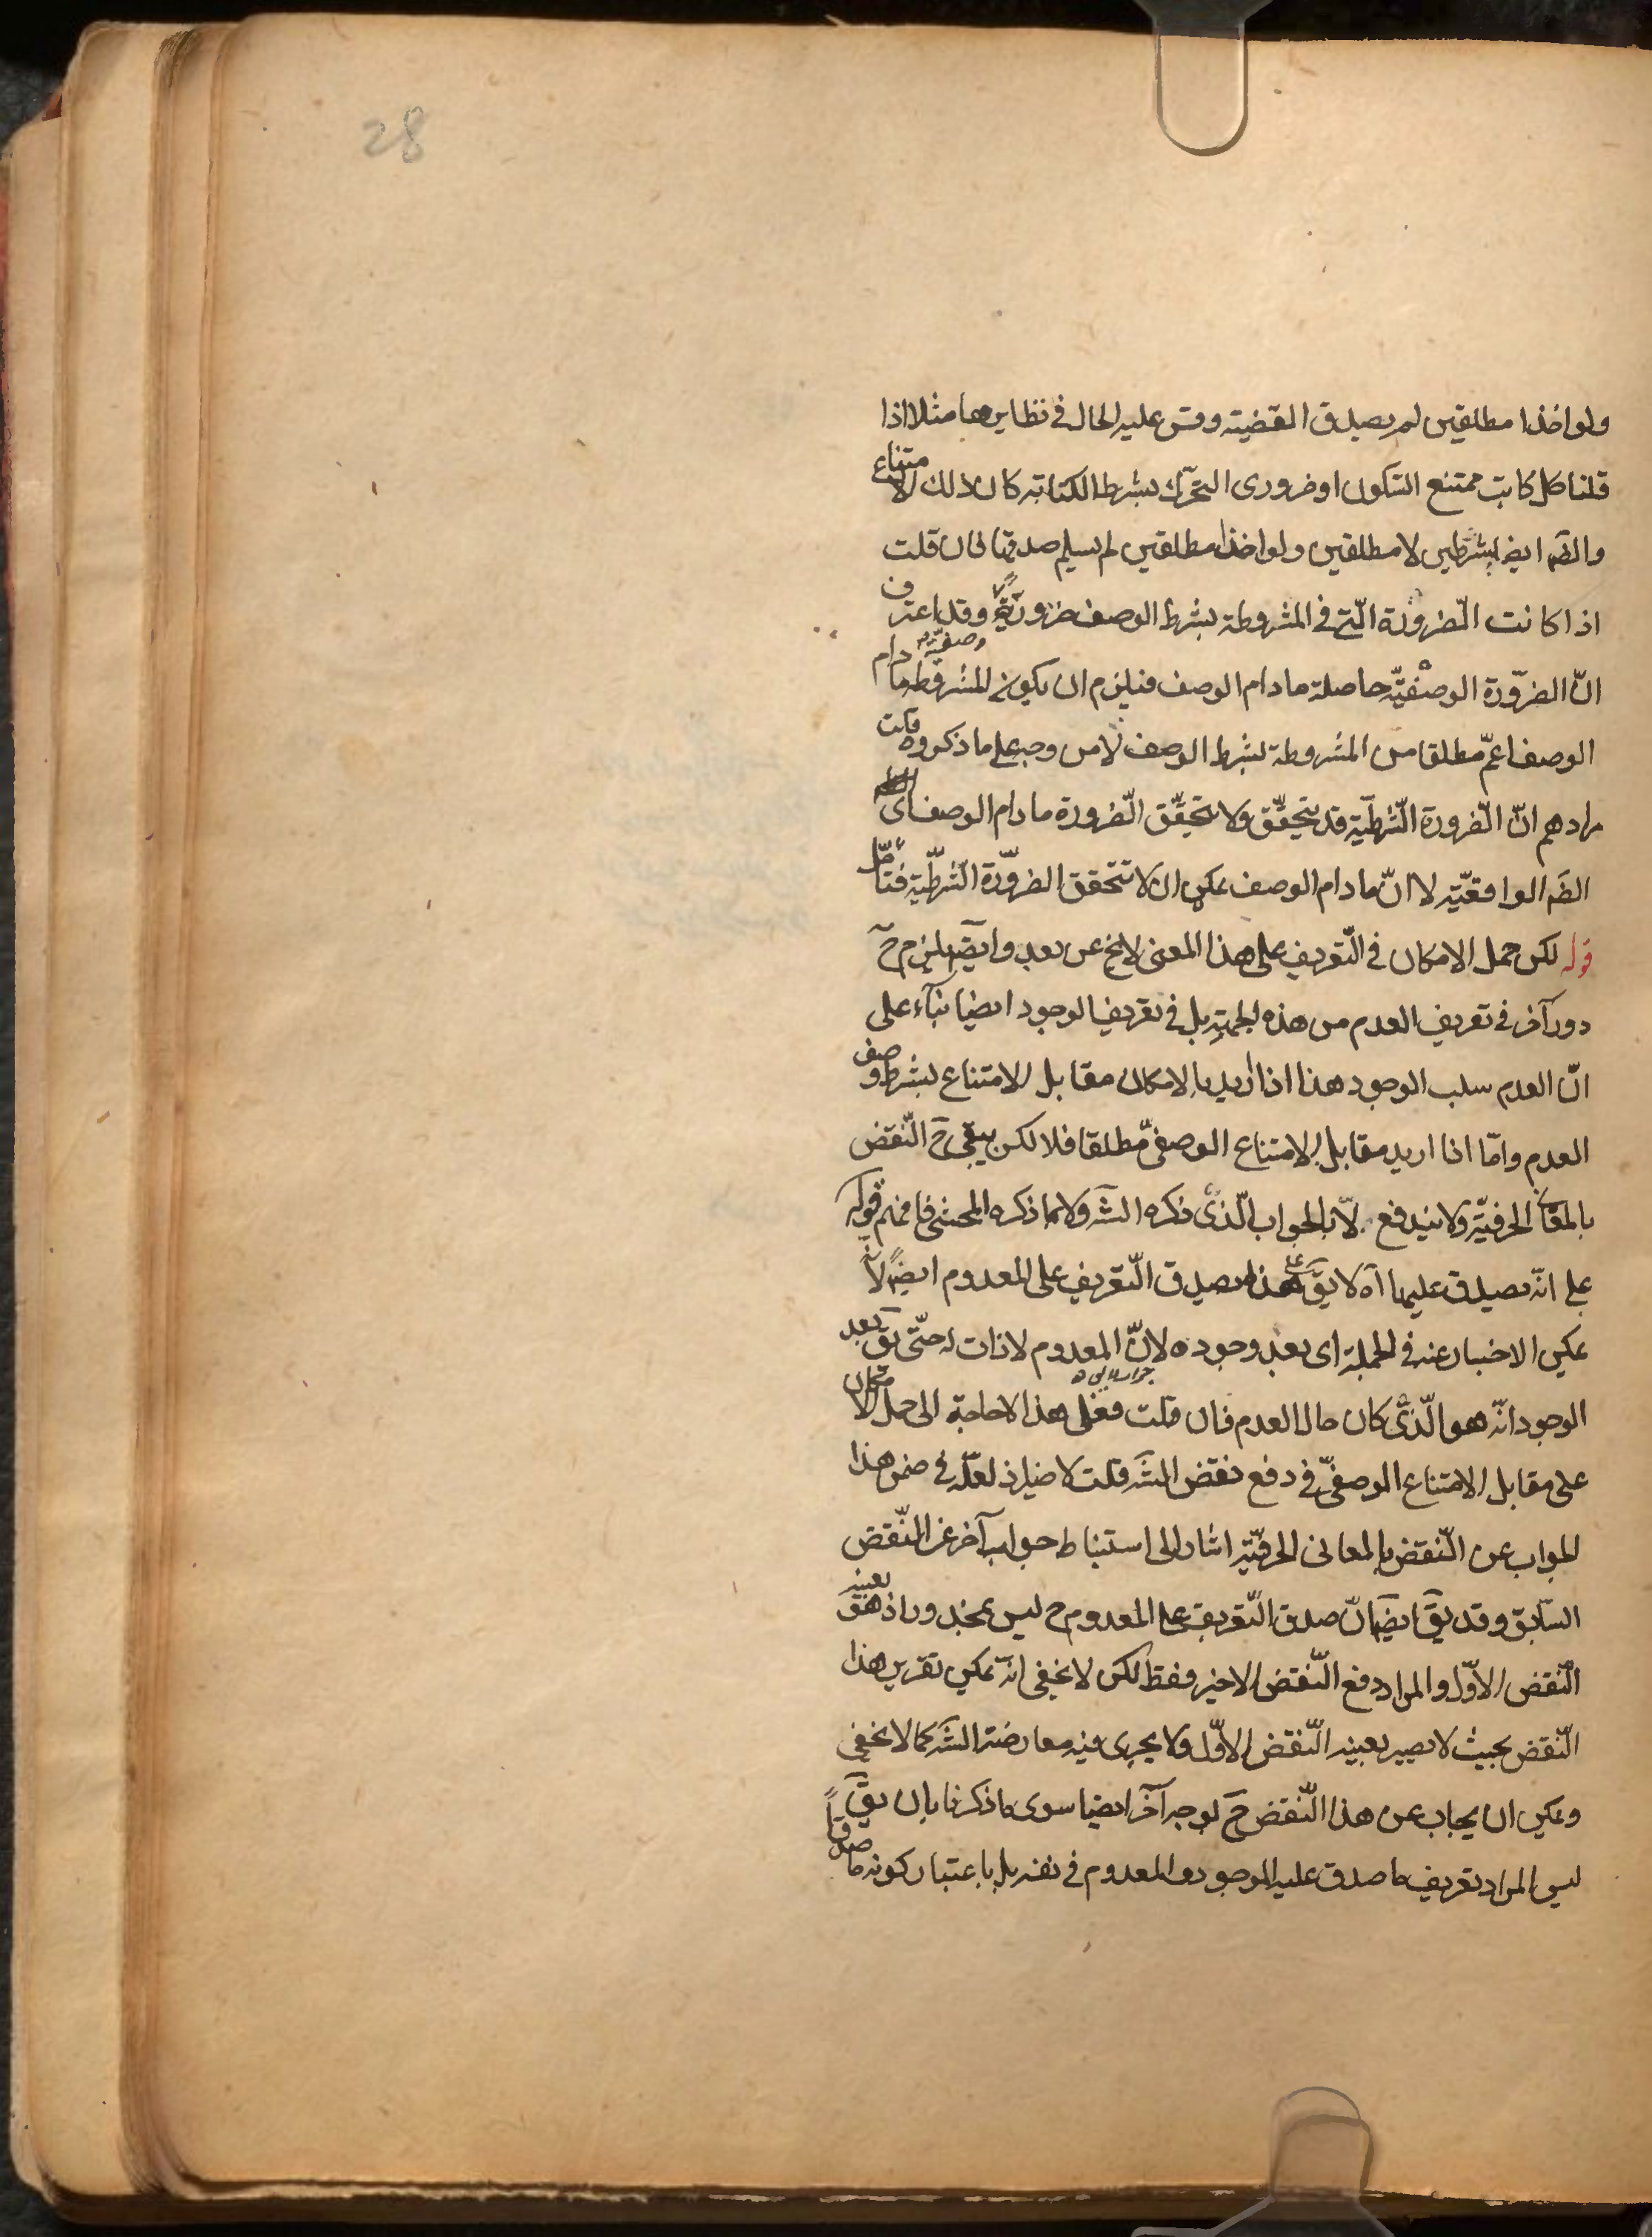 28
ولو اخذا مطلقين لم يصدق القضيته وقس عليه الحال في نظايرهما مثلا اذا
قلنا كل كاتب ممتنع السّكون او ضروري التحرّك بشرط الكتابته كان ذلك الامتناع
والضّر ايض بشرطين لا مطلقين ولو اخذا مطلقين لم يسلم صدقها فان قلت
اذا كانت الضّرورة الّتي في المشروطة بشرط الوصف ضرورة وصفيّة وقد اعترف
انّ الضّرورة الوصفيّه حاصلة ما دام الوصف فيلزم ان يكون المشروطه ما دام
الوصف اعمّ مطلقا من المشروطة بشرط الوصف لا من وجه على ما ذكروه قلت
مرادهم انّ الضّرورة الشّرطيّة قد يتحقّق ولا يتحقّق الضّرورة ما دام الوصف اى
الضّر الواقعيّه لا انّ ما دام الوصف يمكن ان لا تتحقق الضّرورة الشّرطيّة فتأمّل
قوله لكن حمل الامكان في التّعريف على هذا المعنى لايخ عن بعد وايضا يلزم ح
دور آخر في تعريف العدم من هذه الجهتة بل في تعريف الوجود ايضا بنآء على
انّ العدم سلب الوجود هذا اذا اريد بالامكان مقابل الامتناع بشرط وصف
العدم وامّا اذا اريد مقابل الامتناع الوصفىّ مطلقا فلا لكن يبقى ح النّقض
بالمعانى الحرفيّة ولا يندفع الّا بالجواب الّذى ذكره الشّر ولا بما ذكره المحشى فافهم قوله
على انّه يصدق عليهما آه لا يقّ على هذا يصدق التّعريف على المعدوم ايضاً لانّه
يمكن الاخبار عنه في الجملة اى بعد وجوده لانّ المعدوم لا ذات له حتّى يقّ بعد
الوجود انّه هو الّذى كان حال العدم فان قلت فعلى هذا لا حاجة الى حمل الامكان
على مقابل الامتناع الوصفىّ في دفع نقض الشّر قلت لا ضير اذ لعلّه في ضمن هذا
الجواب عن النّقض بالمعانى الحرفيّة اشار الى استنباط جواب آخر عن النّقض
السّابق وقد يقّ ايضا انّ صدق التّعريف على المعدوم ح ليس بمحذور اذ هو بعينه
النّقض الاوّل والمراد دفع النّقض الاخير فقط لكن لا يخفى انّه يمكن تقرير هذا
النّقض بحيث لا يصير بعينه النّقض الاوّل ولا يجرى فيه معارضة الشّر كما لا يخفى
ويمكن ان يجاب عن هذا النّقض ح بوجه آخر ايضا سوى ما ذكرنا بان يقّ
ليس المراد تعريف ما صدق عليه الموجود والمعدوم في نفسه بل باعتبار كونه صادقاً